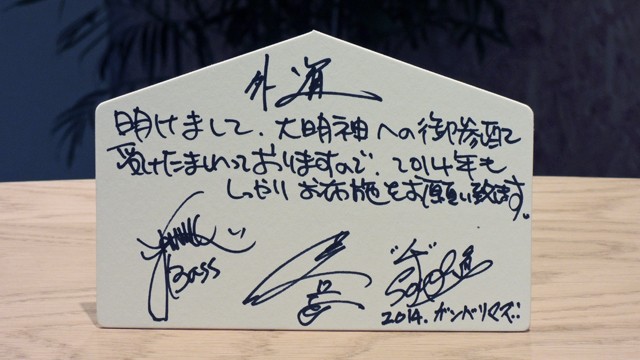 外道
明けまして、大明神への御参配で
受けたまわっておりますので、2014年も
しっかり お布施をお願い致します。
Bass
2014. ガンバリマス!!